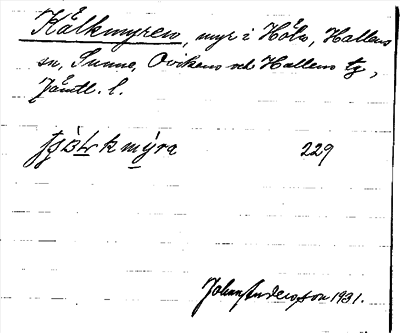 Kälkmyren, myr i Höla, Hallens
sn, Sunne, Ovikens och Hallens tg,
Jämtl. l.
mýra 229
Johan Anderson 1931.